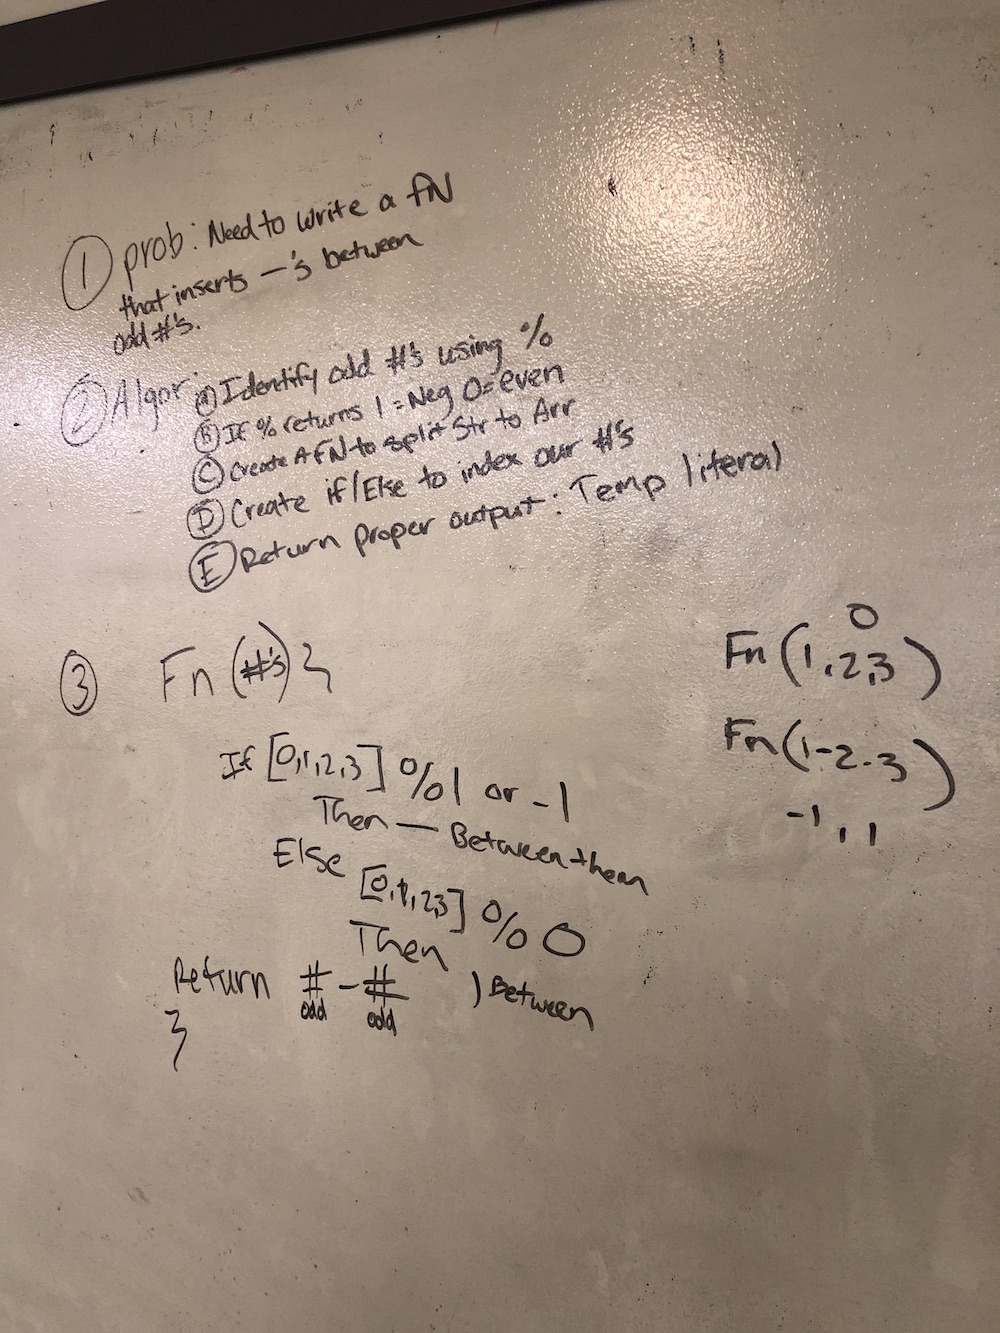 ① prob: Need to write a fN
that inserts —'s between
odd #'s.
② Algor: Ⓐ Identify odd #'s using %
Ⓑ If % returns 1 = Neg 0 = even
Ⓒ Create A fN to split Str to Arr
Ⓓ Create if/Else to index our #'s
Ⓔ Return proper output: Temp literal
③ Fn (#'s) {
If [0,1,2,3] % 1 or -1
Then — Between them
Else [0,1,2,3] % 0
Then
Return # - # ) Between
odd odd
}
0
Fn (1,2,3)
Fn (1-2-3)
-1, 1